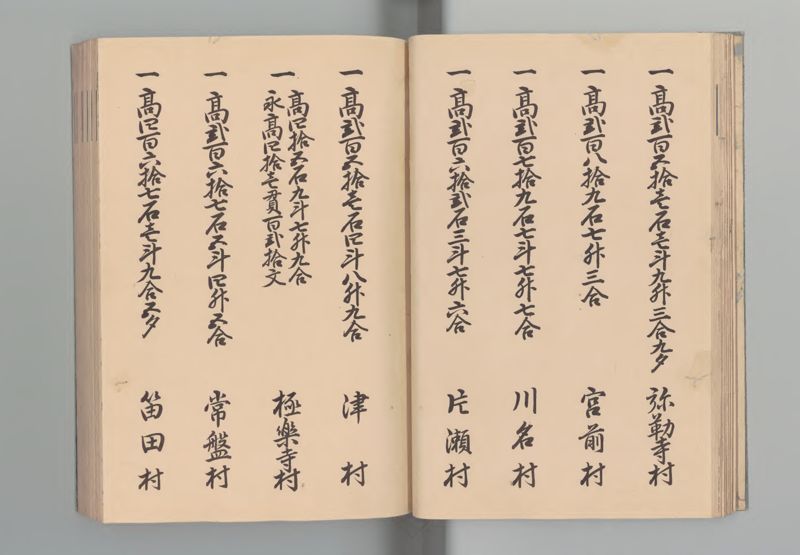 一 高弐百五拾壱石壱斗九升三合九夕 弥勒寺村
一 高弐百八拾九石七升三合 宮前村
一 高弐百七拾九石七斗七升七合 川名村
一 高弐百六拾弐石三斗七升六合 片瀬村
一 高弐百五拾壱石四斗八升九合 津村
一 高四拾五石九斗七升九合
永高四拾壱貫百弐拾文 極楽寺村
一 高弐百六拾七石五斗四升五合 常盤村
一 高四百六拾七石壱斗九合五夕 笛田村